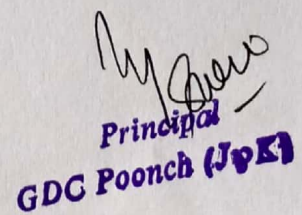 Principal
GDC Poonch (JPK)